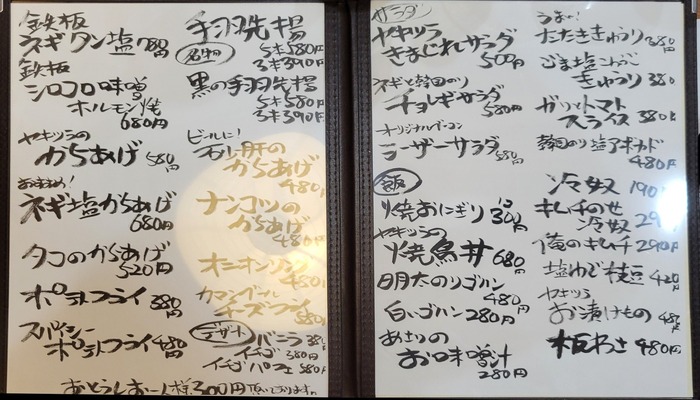 鉄板
ネギタン塩 780円
鉄板
シロコロ味噌
ホルモン焼
680円
ヤキソラの
からあげ 580円
おすすめ!
ネギ塩からあげ
680円
タコのからあげ
520円
ポテトフライ 380円
スパイシー
ポテトフライ 480円
手羽先揚
名物
5本580円
3本390円
黒の手羽先揚
5本580円
3本390円
ビールに!
砂肝の
からあげ
480円
ナンコツの
からあげ
480円
オニオンリング
480円
カマンベール
チーズフライ
580円
デザート
バニラ
イチゴ 380円
イチゴパフェ 580円
おとうしお一人様300円頂いております。
サラダ
ヤキソラ
きまぐれサラダ
500円
ネギと韓国のり
チョレギサラダ
580円
オリジナルベーコン
シーザーサラダ
580円
飯
焼おにぎり 1コ 300円
ヤキソラの
焼鳥丼 680円
明太のりゴハン
480円
白いゴハン 280円
あさりの
お味噌汁
280円
うまい!
たたききゅうり 380円
ごま塩こんぶ
きゅうり 380
ガリトマト
スライス 380円
韓国のり塩アボカド
480円
冷奴 190円
キムチのせ
冷奴 290
俺のキムチ 290円
塩ゆで枝豆 420円
ヤキソラ
お漬けもの 480円
板わさ 480円